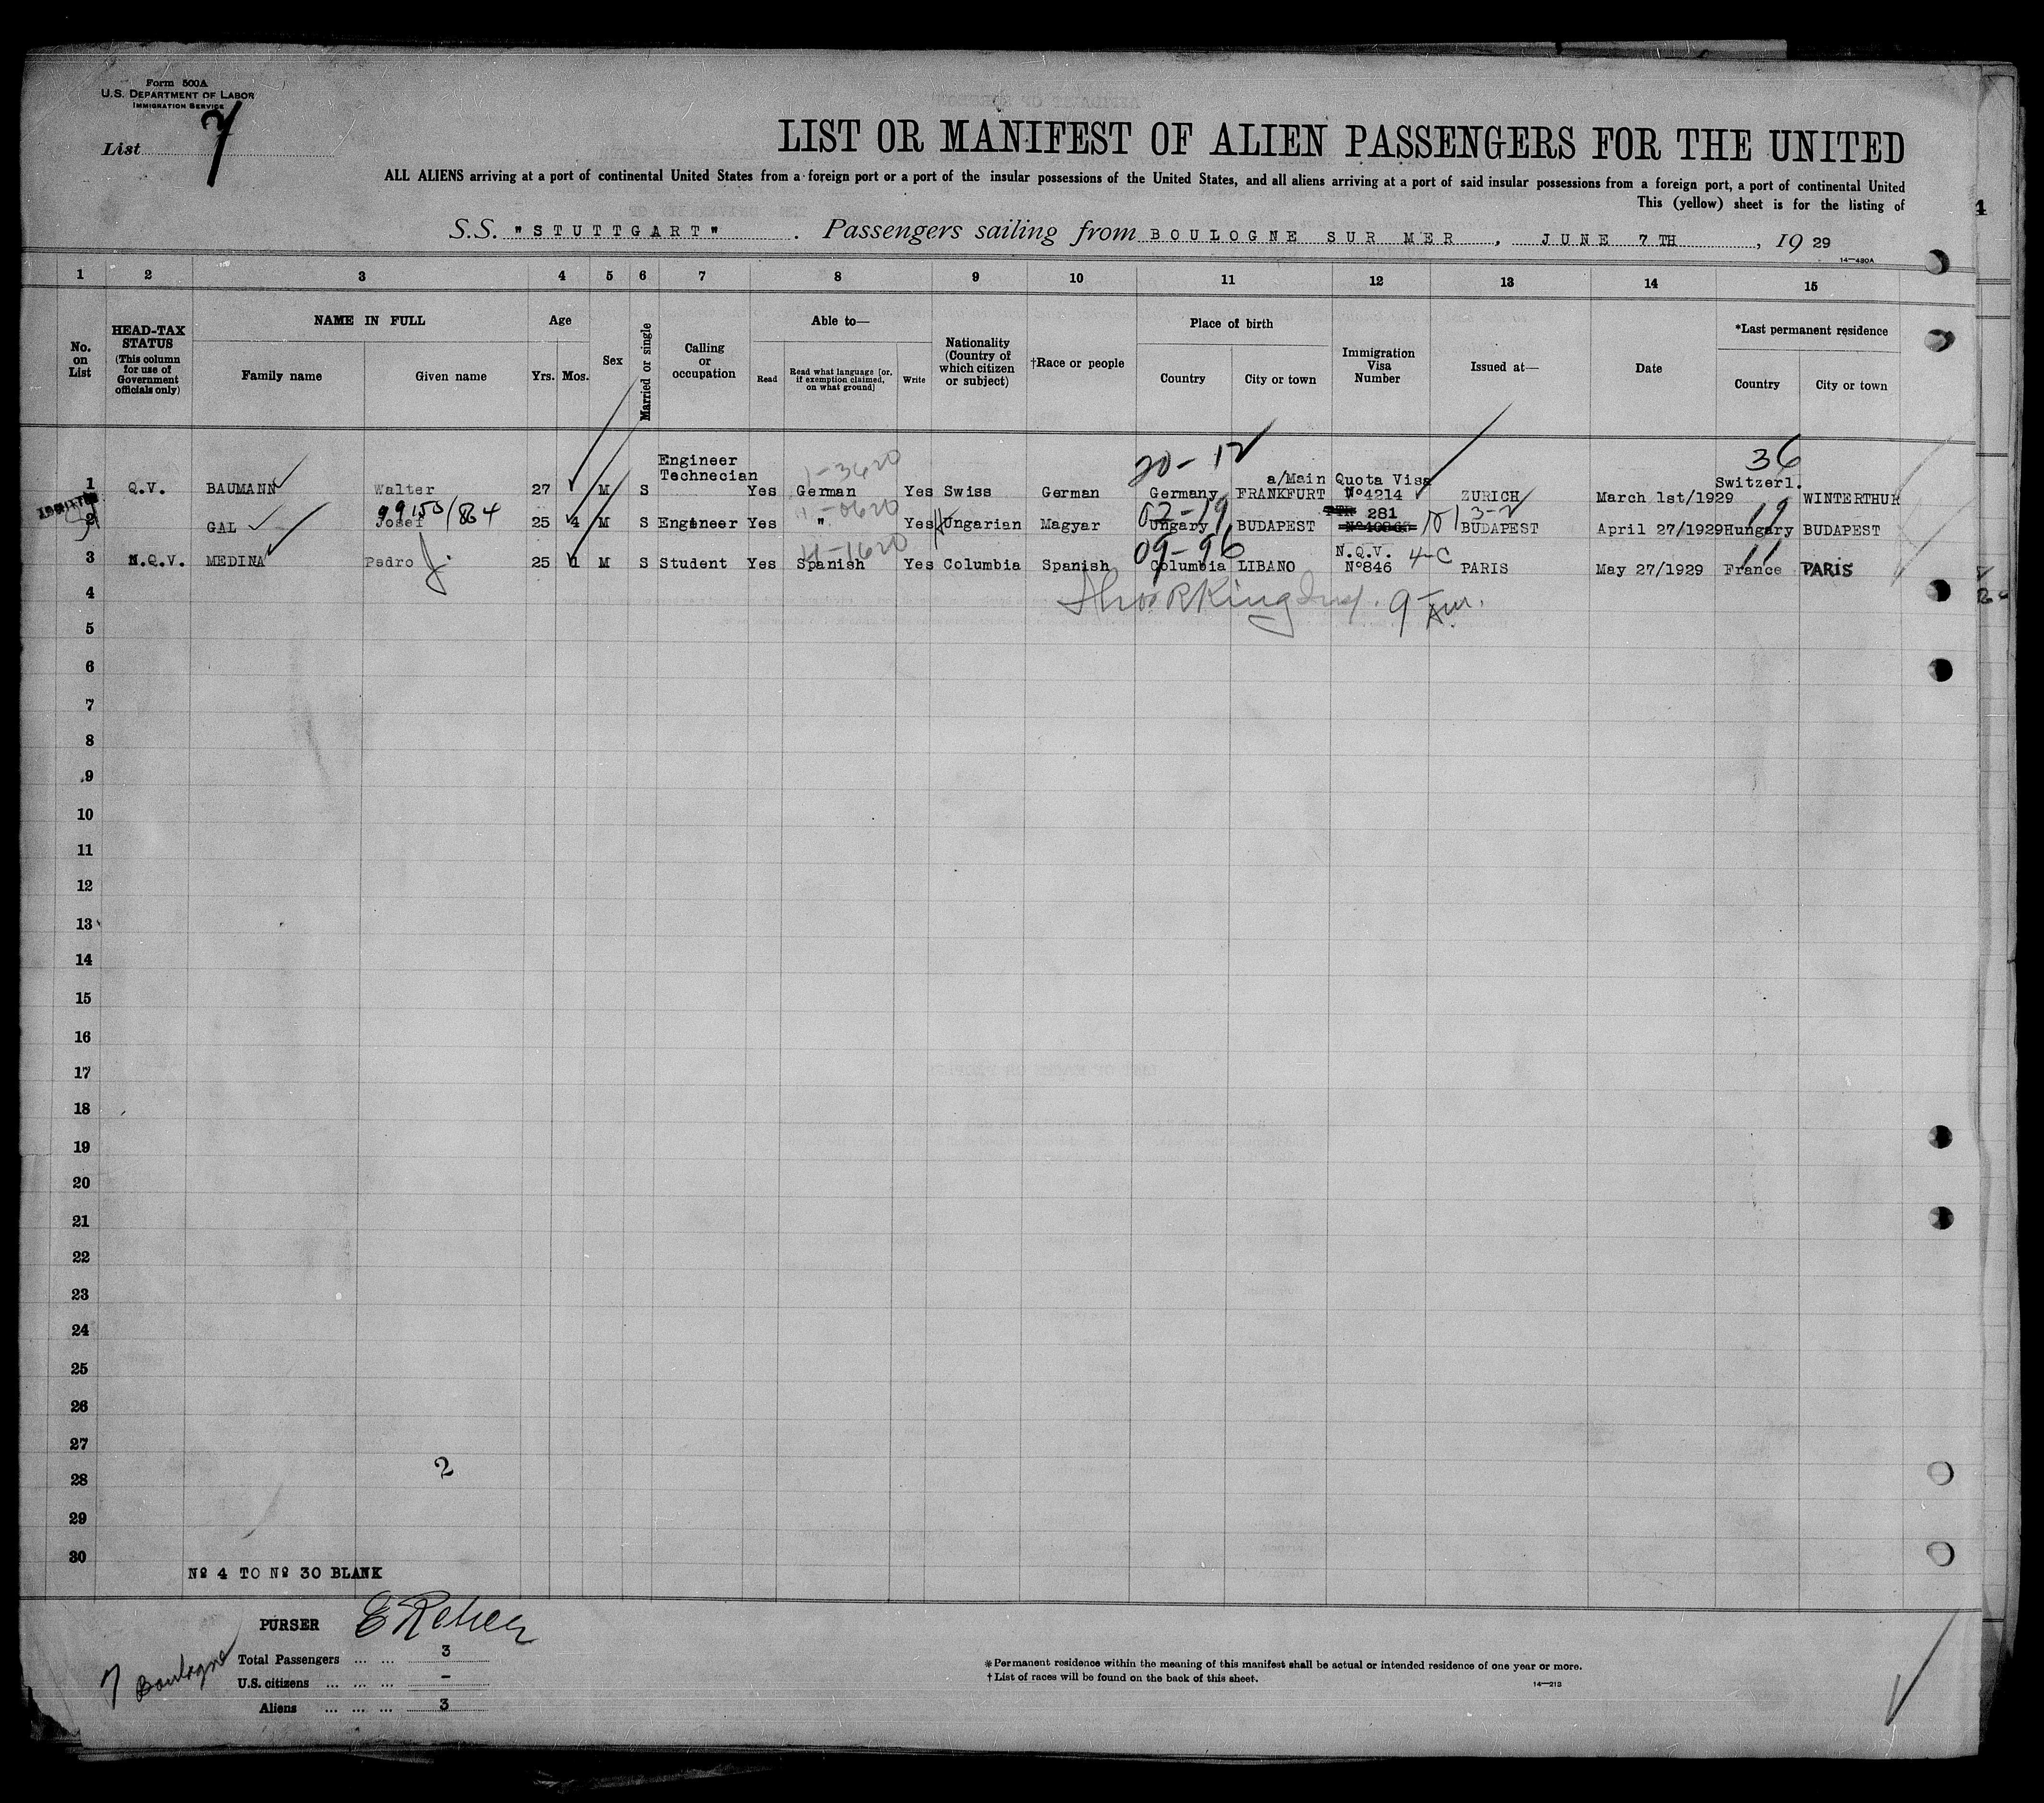 Form 500A
U.S. DEPARTMENT OF LABOR
IMMIGRATION SERVICE
List 7
LIST OR MANIFEST OF ALIEN PASSENGERS FOR THE UNITED
ALL ALIENS arriving at a port of continental United States from a foreign port or a port of the insular possessions of the United States, and all aliens arriving at a port of said insular possessions from a foreign port, a port of continental United
This (yellow) sheet is for the listing of
S.S. "STUTTGART". Passengers sailing from BOULOGNE SUR MER, JUNE 7TH, 1929
14—480A
1 2 3 4 5 6 7 8 9 10 11 12 13 14 15
No. on List
HEAD-TAX STATUS (This column for use of Government officials only)
NAME IN FULL
Family name
Given name
Age
Yrs. Mos.
Sex
Married or single
Calling or occupation
Able to—
Read
Read what language [or, if exemption claimed, on what ground]
Write
Nationality (Country of which citizen or subject)
†Race or people
Place of birth
Country
City or town
Immigration Visa Number
Issued at—
Date
*Last permanent residence
Country
City or town
20-12 36
1-3620
1 Q.V. BAUMANN Walter 27 M S Engineer Technecian Yes German Yes Swiss German Germany a/Main FRANKFURT Quota Visa Nº4214 ZURICH March 1st/1929 Switzerl. WINTERTHUR
99153/884
-0620 02-19 3-2 19
2 GAL Josef 25 4 M S Engineer Yes " Yes Hungarian Magyar Ungary BUDAPEST 281 BUDAPEST April 27/1929 Hungary BUDAPEST
-1620 09-96 4-C 11
3 N.Q.V. MEDINA Pedro J. 25 1 M S Student Yes Spanish Yes Columbia Spanish Columbia LIBANO N.Q.V. Nº846 PARIS May 27/1929 France PARIS
4
5
6
7
8
9
10
11
12
13
14
15
16
17
18
19
20
21
22
23
24
25
26
27
28 2
29
30
Nº 4 TO Nº 30 BLANK
PURSER
Total Passengers ... ... 3
U.S. citizens ... ... ... –
Aliens ... ... ... 3
7 Boulogne
*Permanent residence within the meaning of this manifest shall be actual or intended residence of one year or more.
†List of races will be found on the back of this sheet.
14—213